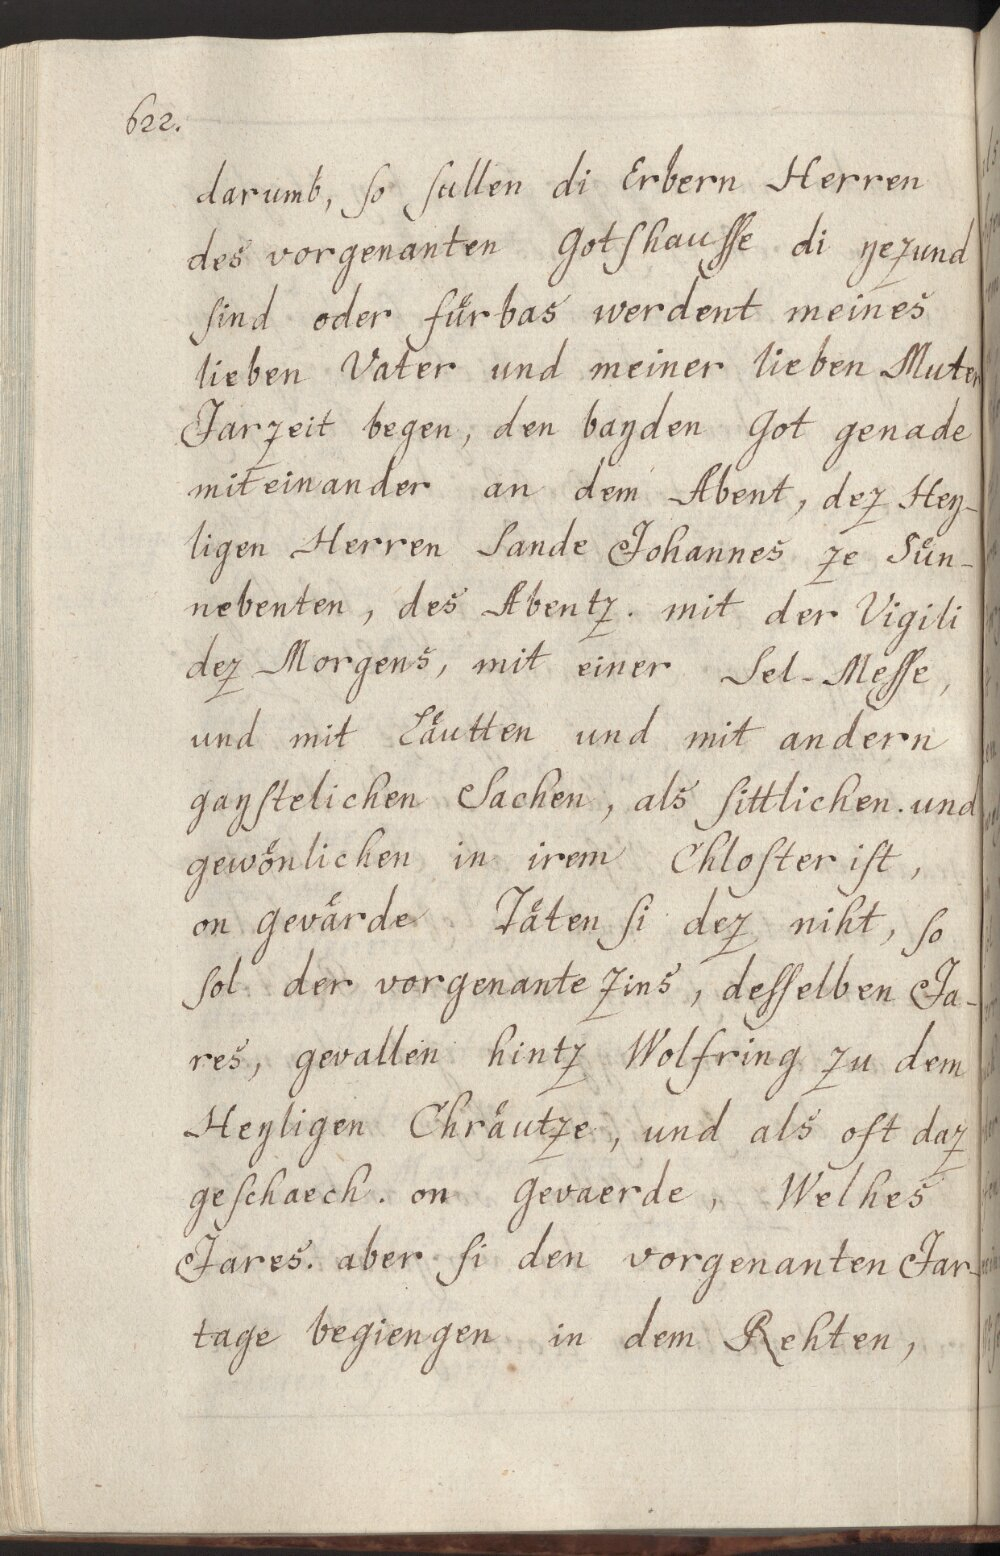 622.
darumb, so sullen di Erbern Herren
des vorgenanten Gotshausse di yezund
sind oder fu̇rbas werdent meines
lieben Vater und meiner lieben Muter
Jarzeit begen, den bayden Got genade
miteinander an dem Abent, dez Hey-
ligen Herren Sande Johannes ze Sůn-
nebenten, des Abentz. mit der Vigili
dez Morgens, mit einer Sel-Messe,
und mit Läutten und mit andern
gaystelichen Sachen, als sittlichen. und
gewönlichen in irem Chloster ist,
on gevärde. Täten si dez niht, so
sol der vorgenante Zins, desselben Ja-
res, gevallen hintz Wolfring zu dem
Heyligen Chräutze, und als oft daz
geschaech. on gevaerde, Welhes
Jares. aber si den vorgenanten Jar-
tage begiengen in dem Rehten,